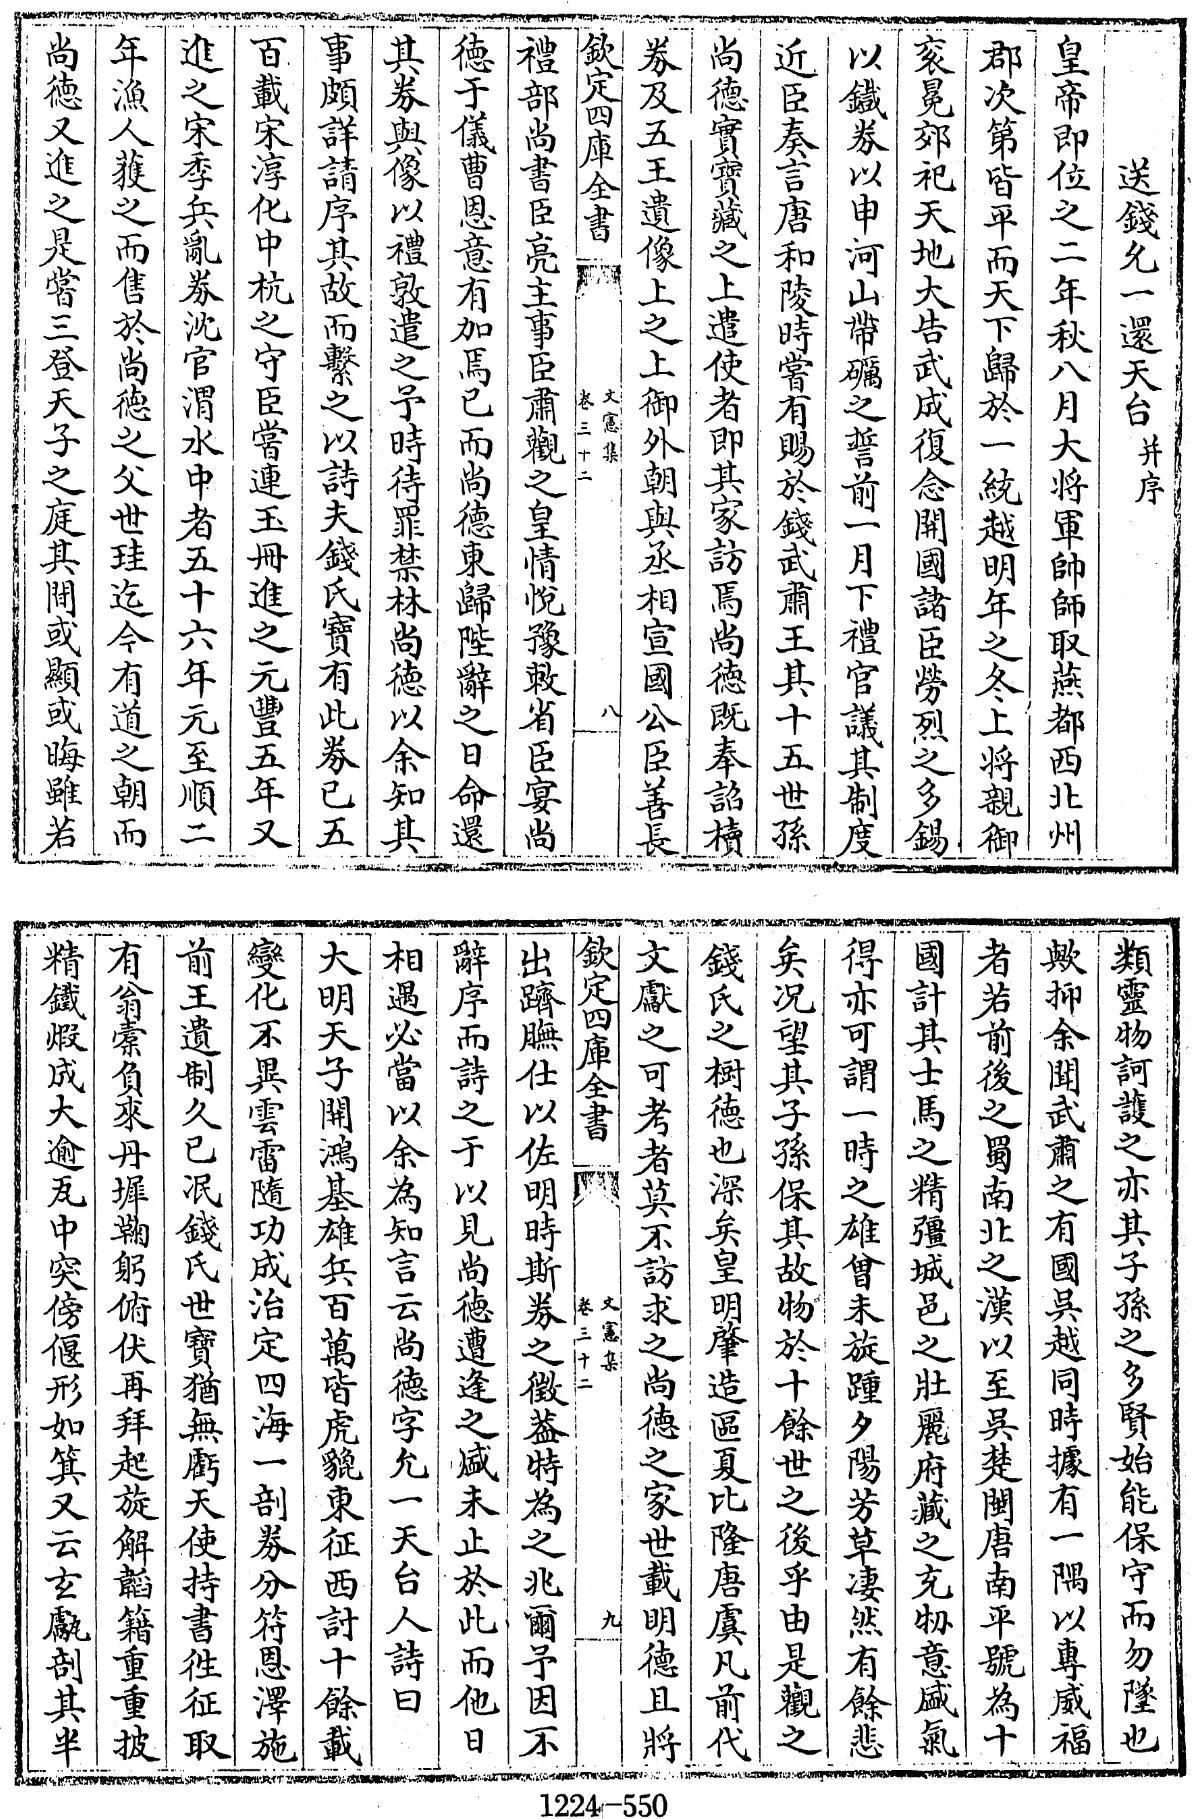 送錢允一還天台并序
皇帝即位之二年秋八月大將軍帥師取燕都西北州
郡次第皆平而天下歸於一統越明年之冬上將親御
袞冕郊祀天地大告武成復念開國諸臣勞烈之多錫
以鐵券以申河山帶礪之誓前一月下禮官議其制度
近臣奏言唐和陵時嘗有賜於錢武肅王其十五世孫
尚德實寶藏之上遣使者即其家訪焉尚德既奉詔櫝
券及五王遺像上之上御外朝與丞相宣國公臣善長
欽定四庫全書
文憲集
卷三十二
八
禮部尚書臣亮主事臣肅觀之皇情悅豫敕省臣宴尚
德于儀曹恩意有加焉已而尚德東歸陛辭之日命還
其券與像以禮敦遣之予時待罪禁林尚德以余知其
事頗詳請序其故而繫之以詩夫錢氏寶有此券已五
百載宋淳化中杭之守臣嘗連玉冊進之元豐五年又
進之宋季兵亂券沈官渭水中者五十六年元至順二
年漁人獲之而售於尚德之父世珪迄今有道之朝而
尚德又進之是嘗三登天子之庭其間或顯或晦雖若
類靈物訶護之亦其子孫之多賢始能保守而勿墜也
歟抑余聞武肅之有國吳越同時據有一隅以專威福
者若前後之蜀南北之漢以至吳楚閩唐南平號為十
國計其士馬之精彊城邑之壯麗府藏之充牣意盛氣
得亦可謂一時之雄曾未旋踵夕陽芳草凄然有餘悲
矣况望其子孫保其故物於十餘世之後乎由是觀之
錢氏之樹德也深矣皇明肇造區夏比隆唐虞凡前代
文獻之可考者莫不訪求之尚德之家世載明德且將
欽定四庫全書
文憲集
卷三十二
九
出躋膴仕以佐明時斯券之徵葢特為之兆爾予因不
辭序而詩之于以見尚德遭逢之盛未止於此而他日
相遇必當以余為知言云尚德字允一天台人詩曰
大明天子開鴻基雄兵百萬皆虎貔東征西討十餘載
變化不異雲雷隨功成治定四海一剖券分符恩澤施
前王遺制久已泯錢氏世寶猶無虧天使持書徃征取
有翁橐負來丹墀鞠躬俯伏再拜起旋解韜籍重重披
精鐵煆成大逾瓦中突傍偃形如箕又云玄甗剖其半
1224-550